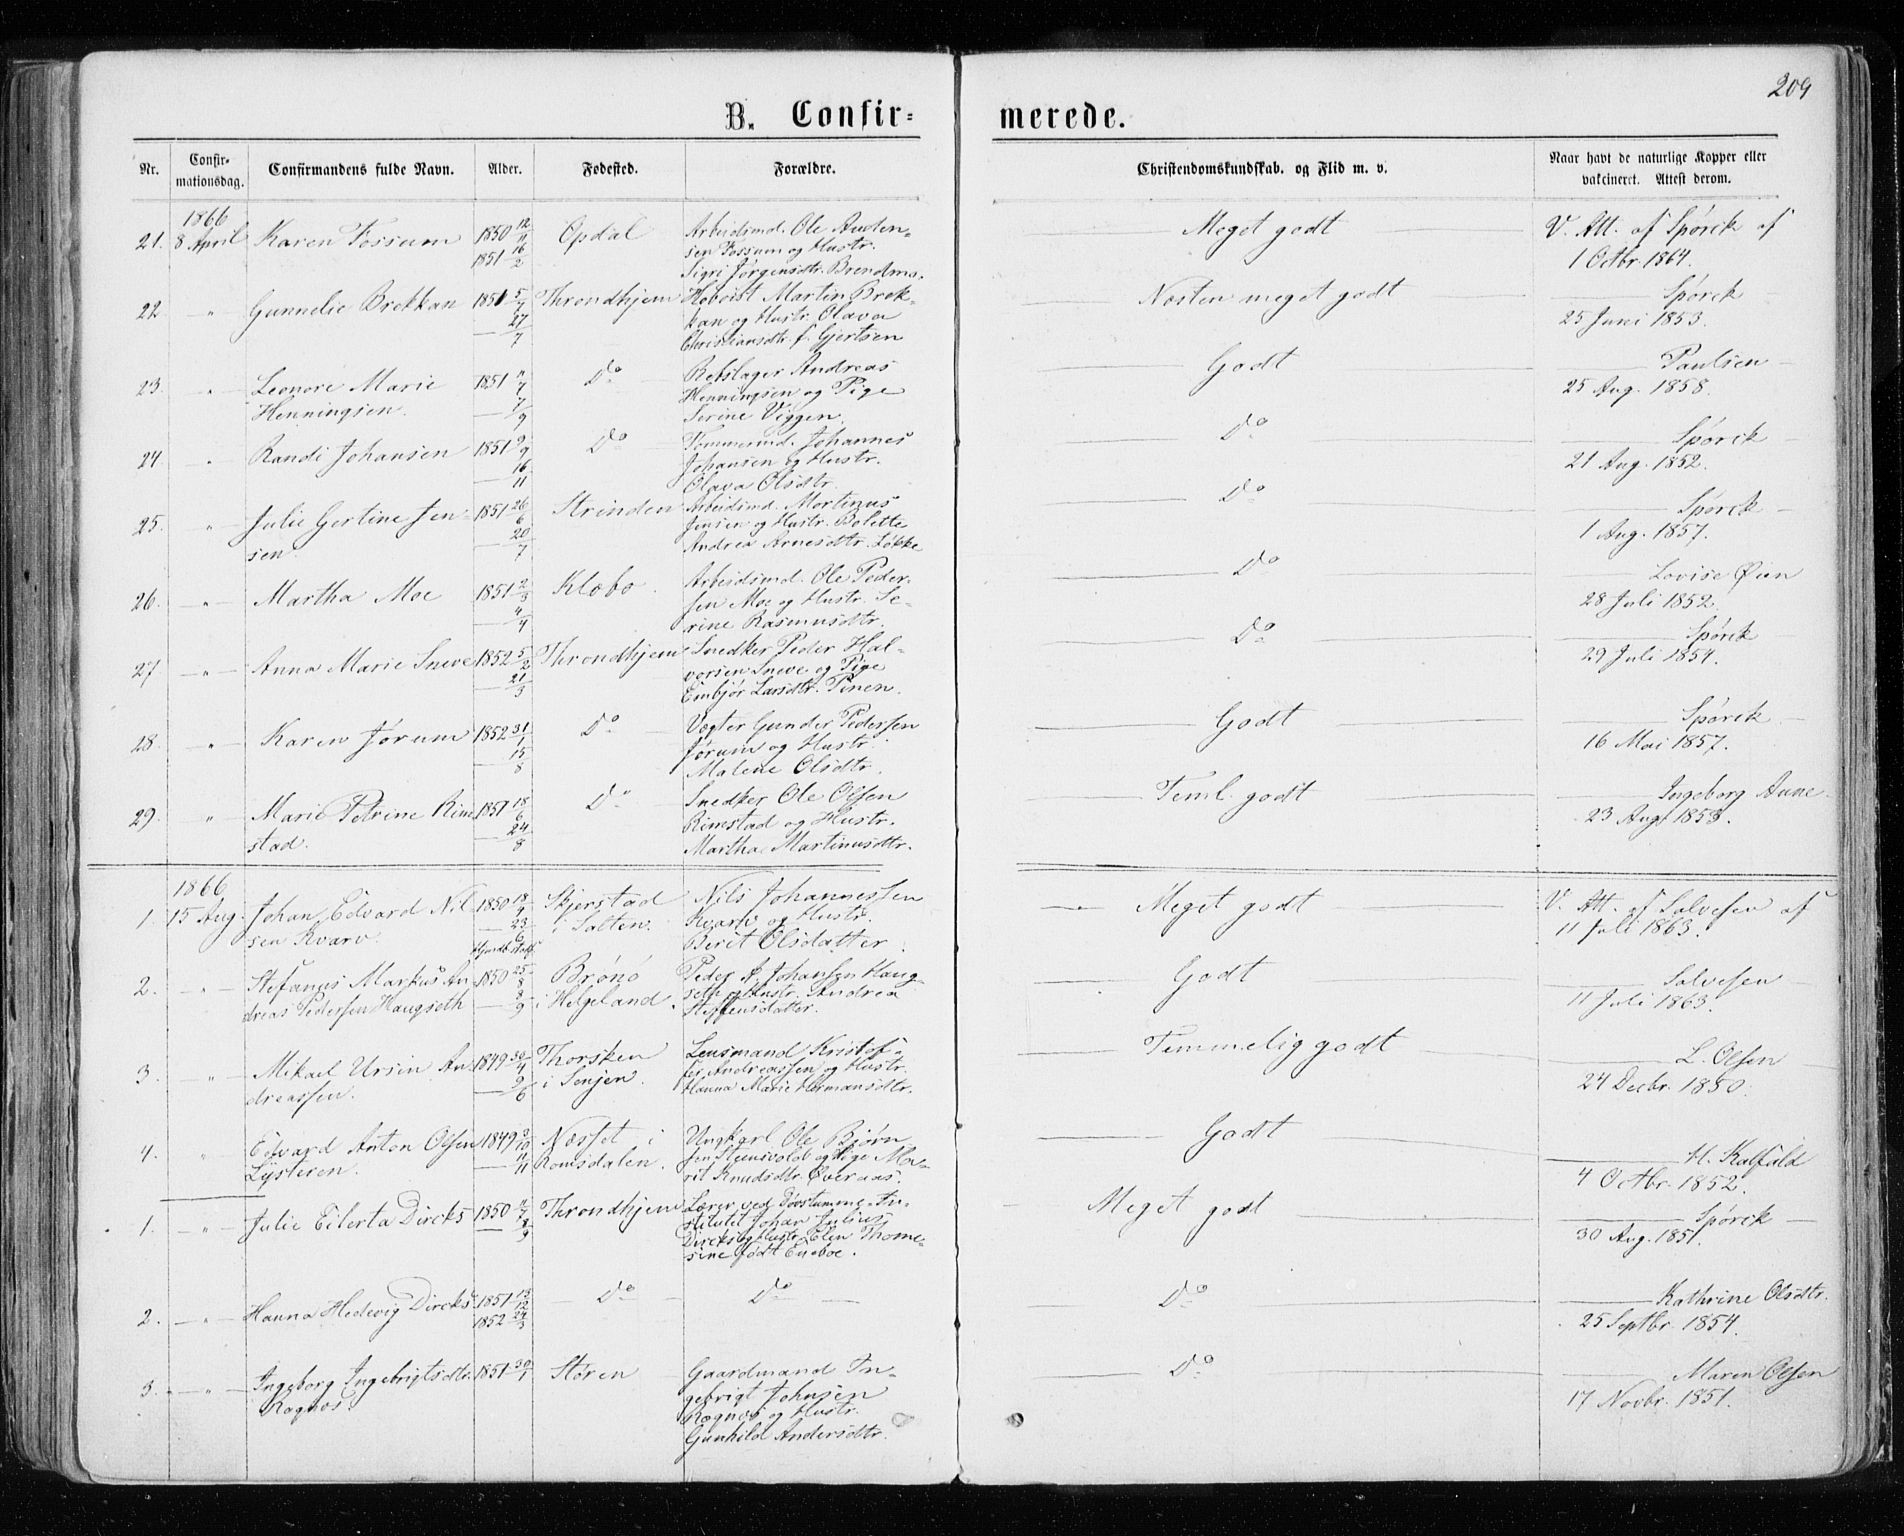 209
B. Confir=
merede.
Nr.
Confir-
mationsdag.
Confirmandens fulde Navn.
Alder.
Fødested.
Forældre.
Christendomskundskab. og Flid m. v.
Naar havt de naturlige Kopper eller
vakcineret. Attest derom.
1866
21. 8 April Karen Fossum 1850 12/11 Opdal Arbeidsmd. Ole Anden- Meget godt V. Att. af Spørck af
1851 16/2 sen Fossum og Hustr. 1 Octbr. 1864.
Sigri Jørgensdtr.
22 " Gunnelie Brekkan 1851 5/7 Throndhjem Martin Brek- Næsten meget godt Spørck
27/7 kan og Hustr. Olava 25 Juni 1853.
Christiansdtr. f. Gjertsen
23. " Leonore Marie 1851 Do Rebslager Andreas Godt Paulsen
Henningsen. 7/9 Henningsen og Pige 25 Aug. 1858.
Serine Viggen.
24. " Randi Johansen 1851 9/9 Do Tømmermd. Johannes Do Spørck
16/11 Johansen og Hustr. 21 Aug. 1852.
Olava Olsdtr.
25. " Julie Gertine Jen 1851 26/6 Strinden Arbeidsmd. Mortinus Do Spørck
sen. 20/7 Jensen og Hustr. Bolette 1 Aug. 1857.
Andrea Arnesdtr. Løkke
26. " Martha Moe 1851 2/3 Klæbo. Arbeidsmd. Ole Peder- Do Lovise Øien
4/4 sen Moe og Hustr. Se- 28 Juli 1852.
rine Rasmusdtr.
27. " Anna Marie Sneve 1852 5/2 Throndhjem Snedker Peder Hal- Do Spørck
21/3 vorsen Sneve og Pige 29 Juli 1854.
Embjør Larsdtr.
28. " Karen Jørum 1852 31/1 Do Vægter Gunder Pedersen Godt Spørck
15/8 Jørum og Hustr. 16 Mai 1857.
Malene Olsdtr.
29. " Marie Petrine Rim 1851 18/6 Do Snedker Ole Olsen Teml. godt Ingeborg Aune
stad. 24/8 Rimstad og Hustr. 23 Aug. 1853.
Martha Martinusdtr.
1866
1. 15 Aug. Johan Edvard Nil 1850 18/ Skjerstad Nils Johannessen Meget godt V. Att. af Salvesen af
sen Kvarv 23/6 i Salten. Kvarv og Hustr. 11 Juli 1863.
Berit Olsdatter
2. " Stefanus Markus An 1850 25/8 Brønø Peder A. Johansen Haug Godt Salvesen
dreas Pedersen Haugseth 8/9 i Helgeland. seth og Hustr. Andrea 11 Juli 1863.
Steffensdatter.
3. " Mikael Ursin An 1849 30/4 Thorsken Lensmand Kristof- Temmelig godt L. Olsen
dreassen. 9/6 i Senjen. fer Andreassen og Hustr. 24 Decbr. 1850.
Hanna Marie Hermansdtr.
4. " Edvard Anton Olsen 1849 3/10 Næsset i Ungkarl Ole Bjørn Godt H. Kalfald
Lysteren. 11/11 Romsdalen. sen og Pige Ma- 4 Octbr. 1852.
rit Knudsdtr. Øveraas.
1. " Julie Eilerta Dircks 1850 Throndhjem Lærer ved Døvstumme-In- Meget godt Spørck
8/9 stitutet Johan Julius 30 Aug. 1851.
Dircks og Hustr. Elen Thome-
sine født Eneboe.
2. " Hanna Hedevig Dircks 1851 13/12 Do Do Do Kathrine Olsdtr.
1852 24/3 25 Septbr. 1854.
3. " Ingeborg Ingebrigtsdtr. 1851 30/1 Støren Gaardmand In- Do Maren Olsen
Rognæs. gebrigt Johnsen 17 Novbr. 1851.
Rognæs og Hustr.
Gunhild Andersdtr.